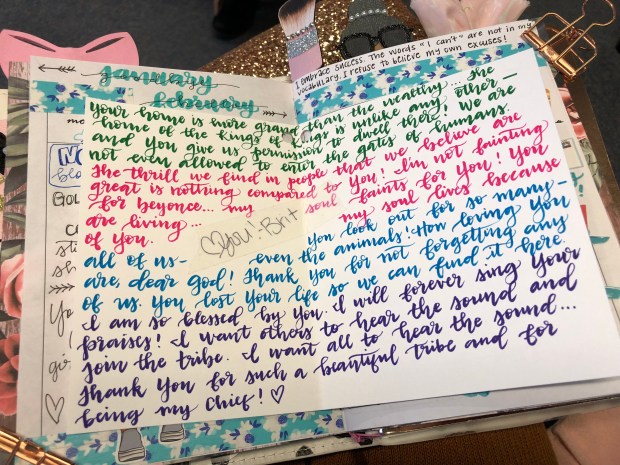 I embrace success. The words "I can't" are not in my
vocabulary. I refuse to believe my own excuses!
january
february
Your home is more grand than the wealthy... the
home of the kings of kings is unlike any other-
and you give us permission to dwell there! We are
not even allowed to enter the gates of humans.
The thrill we find in people that we believe are
great is nothing compared to You! I'm not fainting
for beyonce... my soul faints for You! You
are living... my soul lives because
of You.
♡You! -Brit
You look out for so many-
all of us- even the animals! How loving You
are, dear God! Thank You for not forgetting any
of us. You lost Your life so we can find it here.
I am so blessed by You. I will forever sing Your
praises! I want others to hear the sound and
join the tribe. I want all to hear the sound...
Thank You for such a beautiful tribe and for
being my Chief! ♡